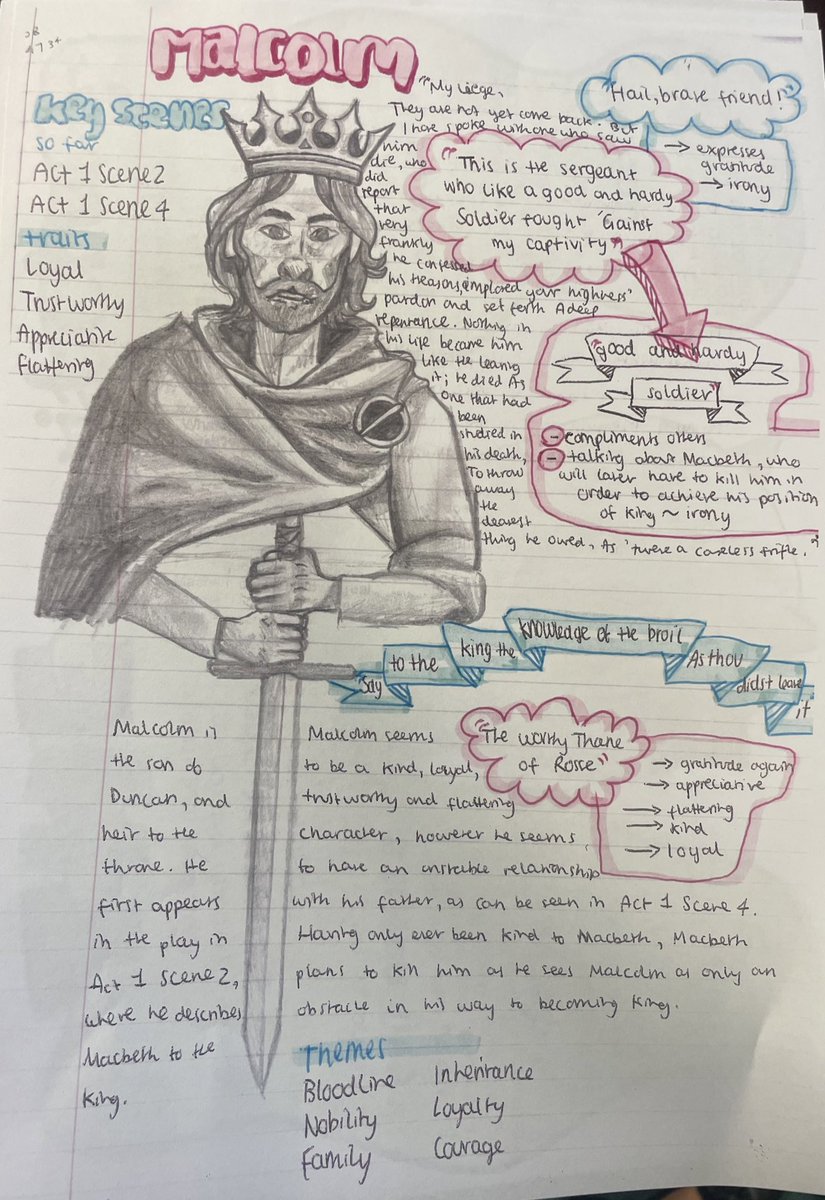 Malcolm
Key scenes
so far
Act 1 Scene 2
Act 1 Scene 4
traits
Loyal
Trustworthy
Appreciative
flattering
"My Liege,
They are not yet come back. But
I have spoke with one who saw
him
die, who
did
report
that
very
frankly
he confessed
his treasons, emplored your highness'
pardon and set forth A deep
repentance. Nothing in
his life became him
like the leaving
it; he died As
one that had
been
studied in
his death,
To throw
away
the
dearest
thing he owed, As 'twere a careless trifle."
"Hail, brave friend!"
→ expresses
gratitude
→ irony
"This is the sergeant
who like a good and hardy
Soldier fought 'Gainst
my captivity"
"good and hardy
soldier"
- compliments others
- talking about Macbeth, who
will later have to kill him in
order to achieve his position
of king ~ irony
"Say to the king the knowledge of the broil As thou didst leave it
"The worthy Thane
of Rosse"
→ gratitude again
→ appreciative
→ flattering
→ kind
→ loyal
Malcolm is
the son of
Duncan, and
heir to the
throne. He
first appears
in the play in
Act 1 Scene 2,
where he describes
Macbeth to the
King.
Malcolm seems
to be a kind, loyal,
trustworthy and flattering
character, however he seems
to have an unstable relationship
with his father, as can be seen in Act 1 Scene 4.
Having only ever been kind to Macbeth, Macbeth
plans to kill him as he sees Malcolm as only an
obstacle in his way to becoming King.
Themes
Bloodline
Nobility
Family
Inheritance
Loyalty
Courage